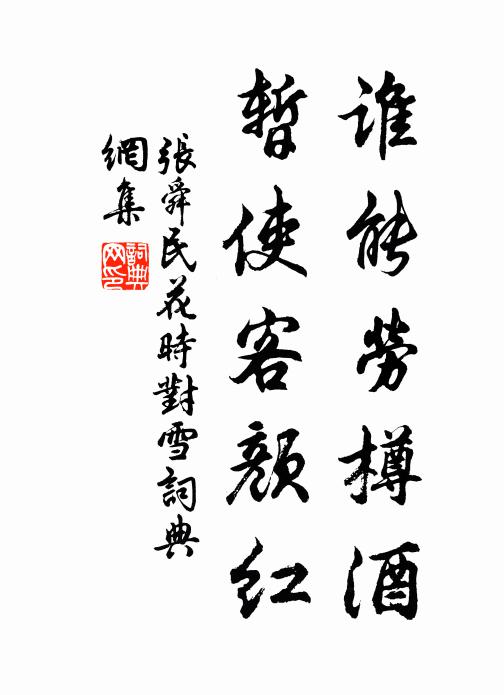 谁能勞樽酒
暫使客顔紅
張舜民花時對雪詞典
網集
詞典
网印